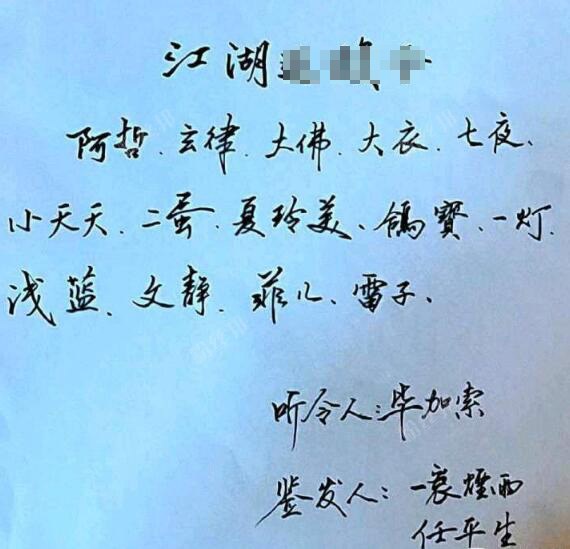 江湖
阿哲、玄律、大佛、大衣、七夜、
小天天、二蛋、夏玲美、鸽寳、一灯、
浅蓝、文静、菲儿、雷子、
听令人：毕加索
鉴发人：一蓑煙雨
任平生